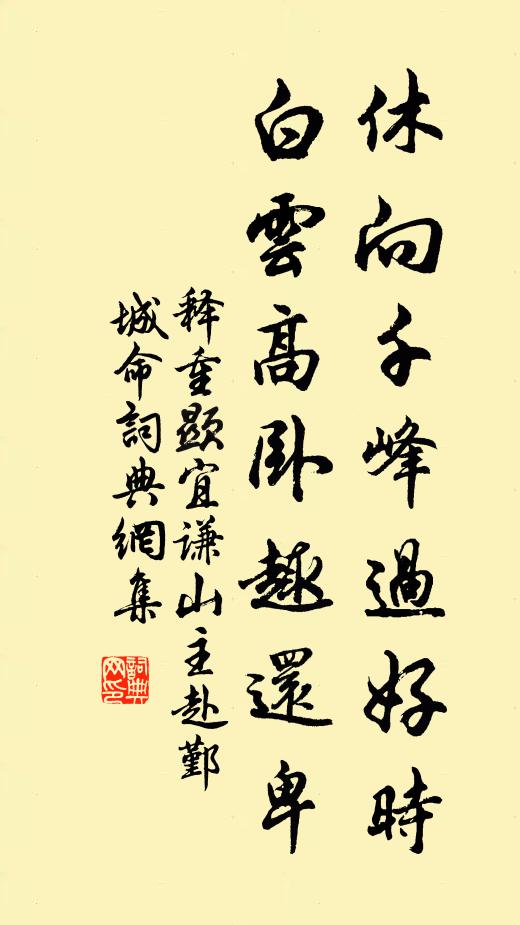 休向千峰過好時
白雲高卧趣還卑
释重顯宜谦山主赴鄞
城命詞典網集
詞典網印